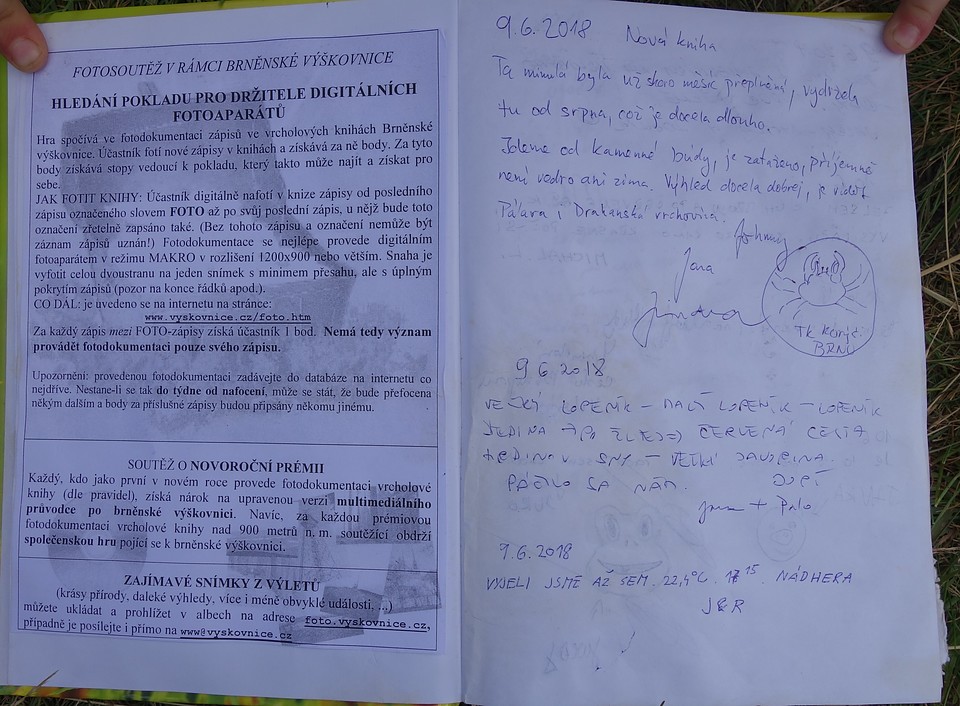 FOTOSOUTĚŽ V RÁMCI BRNĚNSKÉ VÝŠKOVNICE
HLEDÁNÍ POKLADU PRO DRŽITELE DIGITÁLNÍCH
FOTOAPARÁTŮ
Hra spočívá ve fotodokumentaci zápisů ve vrcholových knihách Brněnské
výškovnice. Účastník fotí nové zápisy v knihách a získává za ně body. Za tyto
body získává stopy vedoucí k pokladu, který takto může najít a získat pro
sebe.
JAK FOTIT KNIHU: Účastník digitálně nafotí v knize zápisy od posledního
zápisu označeného slovem FOTO až po svůj poslední zápis, u nějž bude toto
označení zřetelně zapsáno také. (Bez tohoto zápisu a označení nemůže být
záznam zápisů uznán!) Fotodokumentace se nejlépe provede digitálním
fotoaparátem v režimu MAKRO v rozlišení 1200x900 nebo větším. Snaha je
vyfotit celou dvoustranu na jeden snímek s minimem přesahu, ale s úplným
pokrytím zápisů (pozor na konce řádků apod.).
CO DÁL: je uvedeno se na internetu na stránce:
www.vyskovnice.cz/foto.htm
Za každý zápis mezi FOTO-zápisy získá účastník 1 bod. Nemá tedy význam
provádět fotodokumentaci pouze svého zápisu.
Upozornění: provedenou fotodokumentaci zadávejte do databáze na internetu co
nejdříve. Nestane-li se tak do týdne od nafocení, může se stát, že bude přefocena
někým dalším a body za příslušné zápisy budou připsány někomu jinému.
SOUTĚŽ O NOVOROČNÍ PRÉMII
Každý, kdo jako první v novém roce provede fotodokumentaci vrcholové
knihy (dle pravidel), získá nárok na upravenou verzi multimediálního
průvodce po brněnské výškovnici. Navíc, za každou prémiovou
fotodokumentaci vrcholové knihy nad 900 metrů n. m. soutěžící obdrží
společenskou hru pojící se k brněnské výškovnici.
ZAJÍMAVÉ SNÍMKY Z VÝLETŮ
(krásy přírody, daleké výhledy, více i méně obvyklé události, ...)
můžete ukládat a prohlížet v albech na adrese foto.vyskovnice.cz,
případně je posílejte i přímo na www@vyskovnice.cz
9.6.2018 Nová kniha
Ta minulá byla už skoro měsíc přeplněná, vydržela
tu od srpna, což je docela dlouho.
Jdeme od kamenné búdy, je zataženo, příjemně
není vedro ani zima. Výhled docela dobrej, je vidět
Pálava i Drahanská vrchovina.
Johnny
Jana
Jindra
TK
BRNO
9 6 2018
VEĽKÝ LOPENÍK – MALÝ LOPENÍK – LOPENÍK
ČERVENÁ CESTA
SNV – VEĽKÁ JAVORINA.
PÁČILO SA NÁM.
+ Palo
9.6.2018
VYJELI JSME AŽ SEM. 22,4°C. 15. NÁDHERA
J&R